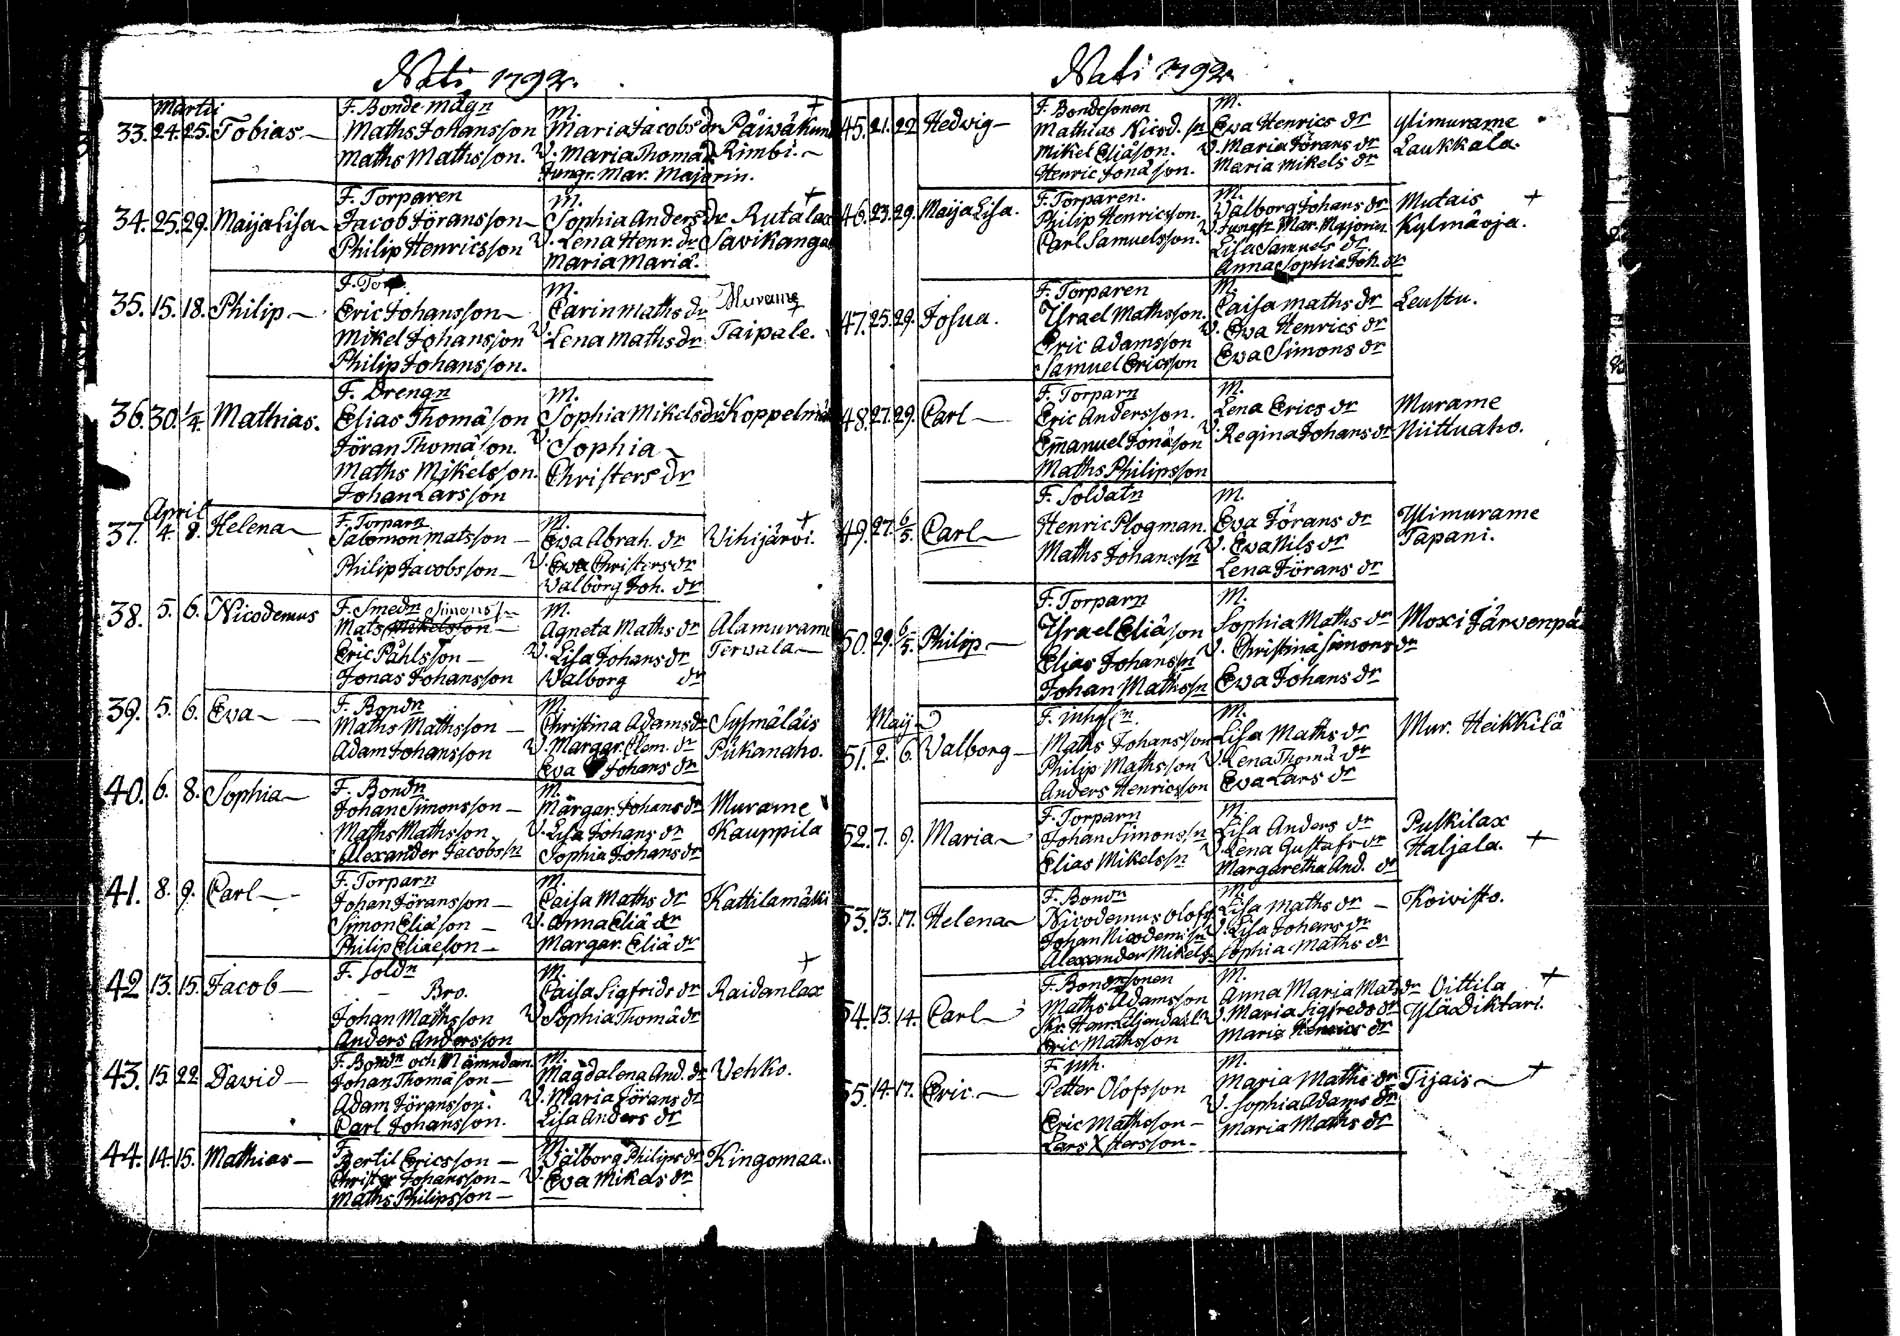 Nati 1792.
Martii
33. 24. 25. Tobias
F. Bonde mågn
Maths Johansson
Maths Mathsson.
M.
Maria Jacobs dr
V. Maria Thomæ dr
Jungr. Mar. Majorin.
+
Päiväkun
Rimbi.
34. 25. 29. Maija Lisa
F. Torparen
Jacob Jöransson
Philip Henricsson
M.
Sophia Anders dr
V. Lena Henr. dr
Maria Mariæ.
+
Rutalax
Savikanga
35. 15. 18. Philip
F. Torp
Eric Johansson
Mikel Johansson
Philip Johansson.
M.
Carin Maths dr
V. Lena Maths dr
Murame
+
Taipale.
36. 30. 1/4. Mathias.
F. Drengn
Elias Thomæson
Jöran Thomæson.
Maths Mikelsson.
Johan Larsson
M.
Sophia Mikels dr
V. Sophia
Christers dr
Koppelmä
April
37. 4. 8. Helena
F. Torparn
Salomon Matsson
Philip Jacobsson
M.
Eva Abrah. dr
V. Eva Christers dr
Valborg Joh. dr
+
Vihijärvi.
38. 5. 6. Nicodemus
F. Smedn Simonss
Mats Mikelsson
Eric Påhlsson
Jonas Johansson
M.
Agneta Maths dr
V. Lisa Johans dr
Valborg dr
Alamurame
Tervala
39. 5. 6. Eva
F. Bondn
Maths Mathsson
Adam Johansson
M.
Christina Adams dr
V. Margar. Clem. dr
Eva Johans dr
Sysmäläis
Piikanaho.
40. 6. 8. Sophia
F. Bondn
Johan Simonsson
Maths Mathsson
Alexander Jacobssn
M.
Margar. Johans dr
V. Lisa Johans dr
Sophia Johans dr
Murame
Kauppila
41. 8. 9. Carl
F. Torparn
Johan Jöransson
Simon Eliæson
Philip Eliæson
M.
Caisa Maths dr
V. Anna Eliæ dr
Margar. Eliæ dr
Kattilamäki
42. 13. 15. Jacob
F. Soldn
Bro.
Johan Mathsson
Anders Andersson
M.
Caisa Sigfrids dr
V. Sophia Thomæ dr
+
Raidanlax
43. 15. 22. David
F. Bondn och Nämndem.
Johan Thomæson
Adam Jöransson.
Carl Johansson.
M.
Magdalena And. dr
V. Maria Jörans dr
Lisa Anders dr
Vehko.
44. 14. 15. Mathias
F.
Bertil Ericsson
Christer Johansson
Maths Philipsson
M.
Valborg Philips dr
V. Eva Mikels dr
Kingomaa.
Nati 1792.
45. 21. 22 Hedvig
F. Bondesonen
Mathias Nicod. sn
Mikel Eliæson.
Henric Jonæson.
M.
Eva Henrics dr
V. Maria Jörans dr
Maria Mikels dr
Ylimurame
Laukkala.
46. 23. 29. Maija Lisa.
F. Torparen.
Philip Henricsson.
Carl Samuelsson.
M.
Valborg Johans dr
V. Jungfr Mar. Majorin
Lisa Samuels dr.
Anna Sophia Joh. dr
Mutais +
Kylmäoja.
47. 25. 29. Josua.
F. Torparen
Ysrael Mathsson.
Eric Adamsson
Samuel Ericsson
M.
Caisa Maths dr
V. Eva Henrics dr
Eva Simons dr
Leustu.
48. 27. 29. Carl
F. Torparn
Eric Andersson.
Emanuel Jonæson
Maths Philipsson
M.
Lena Erics dr
V. Regina Johans dr
Murame
Niittuaho.
49. 27. 6/5. Carl
F. Soldatn
Henric Plogman.
Maths Johanssn
M.
Eva Jörans dr
V. Eva Nils dr
Lena Jörans dr
Ylimurame
Tapani.
50. 29. 6/5. Philip
F. Torparn
Ysrael Eliæson
Elias Johanssn
Johan Mathssn
M.
Sophia Maths dr
V. Christina Simons dr
Eva Johans dr
Moxi Järvenpä
Maij
51. 2. 6. Valborg
F. inhysn.
Maths Johansson
Philip Mathsson
Anders Henricsson
M.
Lisa Maths dr
V. Lena Thomæ dr
Eva Lars dr
Mur. Heikkilä
52. 7. 9. Maria
F. Torparn
Johan Simonssn
Elias Mikelssn
M.
Lisa Anders dr
V. Lena Gustafs dr
Margaretha And. dr
Puskilax
Haljala. +
53. 13. 17. Helena
F. Bondn
Nicodemus Olofs
Johan Nicodemi sn
Alexander Mikels
M.
Lisa Maths dr
V. Lisa Johans dr
Sophia Maths dr
Koivisto.
54. 13. 14. Carl
F. Bondesonen
Maths Adamsson
Eric Mathsson
M.
Anna Maria Mats dr
V. Maria Sigfreds dr
Maria Henrics dr
Oittila +
Ylädiktari.
55. 14. 17. Eric.
F. inh.
Petter Olofsson
Eric Mathsson
Lars Xstersson
M.
Maria Maths dr
V. Sophia Adams dr
Maria Maths dr
Tijais +